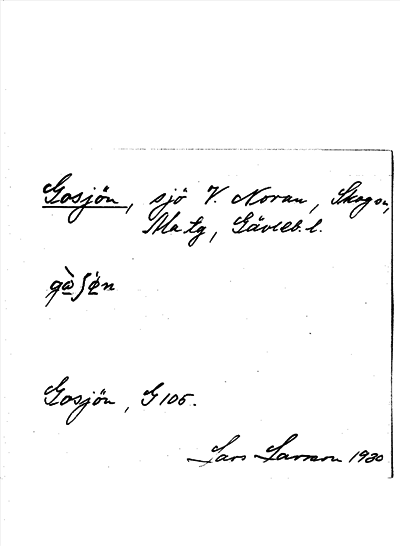 Gosjön, sjö V. Noran, Skog sn,
Ma tg, Gävleb. l.
gὰʃø̀n
Gosjön, G 105.
Lars Larsson 1930